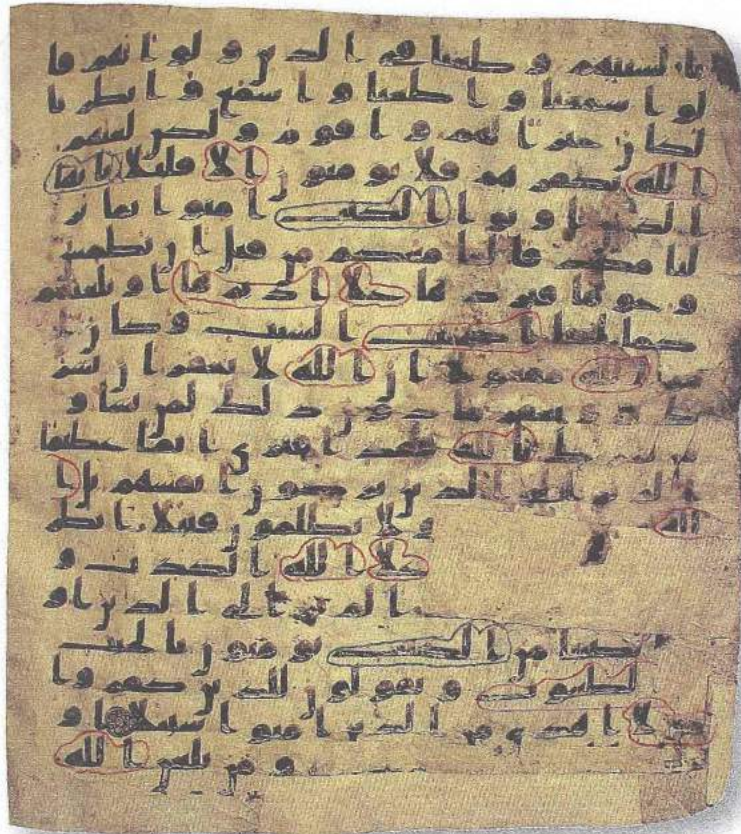 بالسنتهم و طعنا في الدين و لو انهم قا
لوا سمعنا و اطعنا و اسمع و انظرنا
لكان خيرا لهم و اقوم و لكن لعنهم
الله بكفرهم فلا يومنون الا قليلا يايها
الذين اوتوا الكتب امنوا بما نز
لنا مصدقا لما معكم من قبل ان نطمس
وجوها فنردها على ادبرها او نلعنهم
كما لعنا اصحب السبت وكان
امر الله مفعولا ان الله لا يغفر ان يشر
ك به و يغفر ما دون ذلك لمن يشا و
من يشرك بالله فقد افترى اثما عظيما
الم تر الى الذين يزكون انفسهم بل ا
لله و لا يظلمون فتيلا انظر
على الله الكذب و
الم تر الى الذين او
نصيبا من الكتب يومنون بالجبت
الطغوت و يقولون للذين كفروا
هولا اهدى من الذين امنوا سبيلا
و من يلعن الله